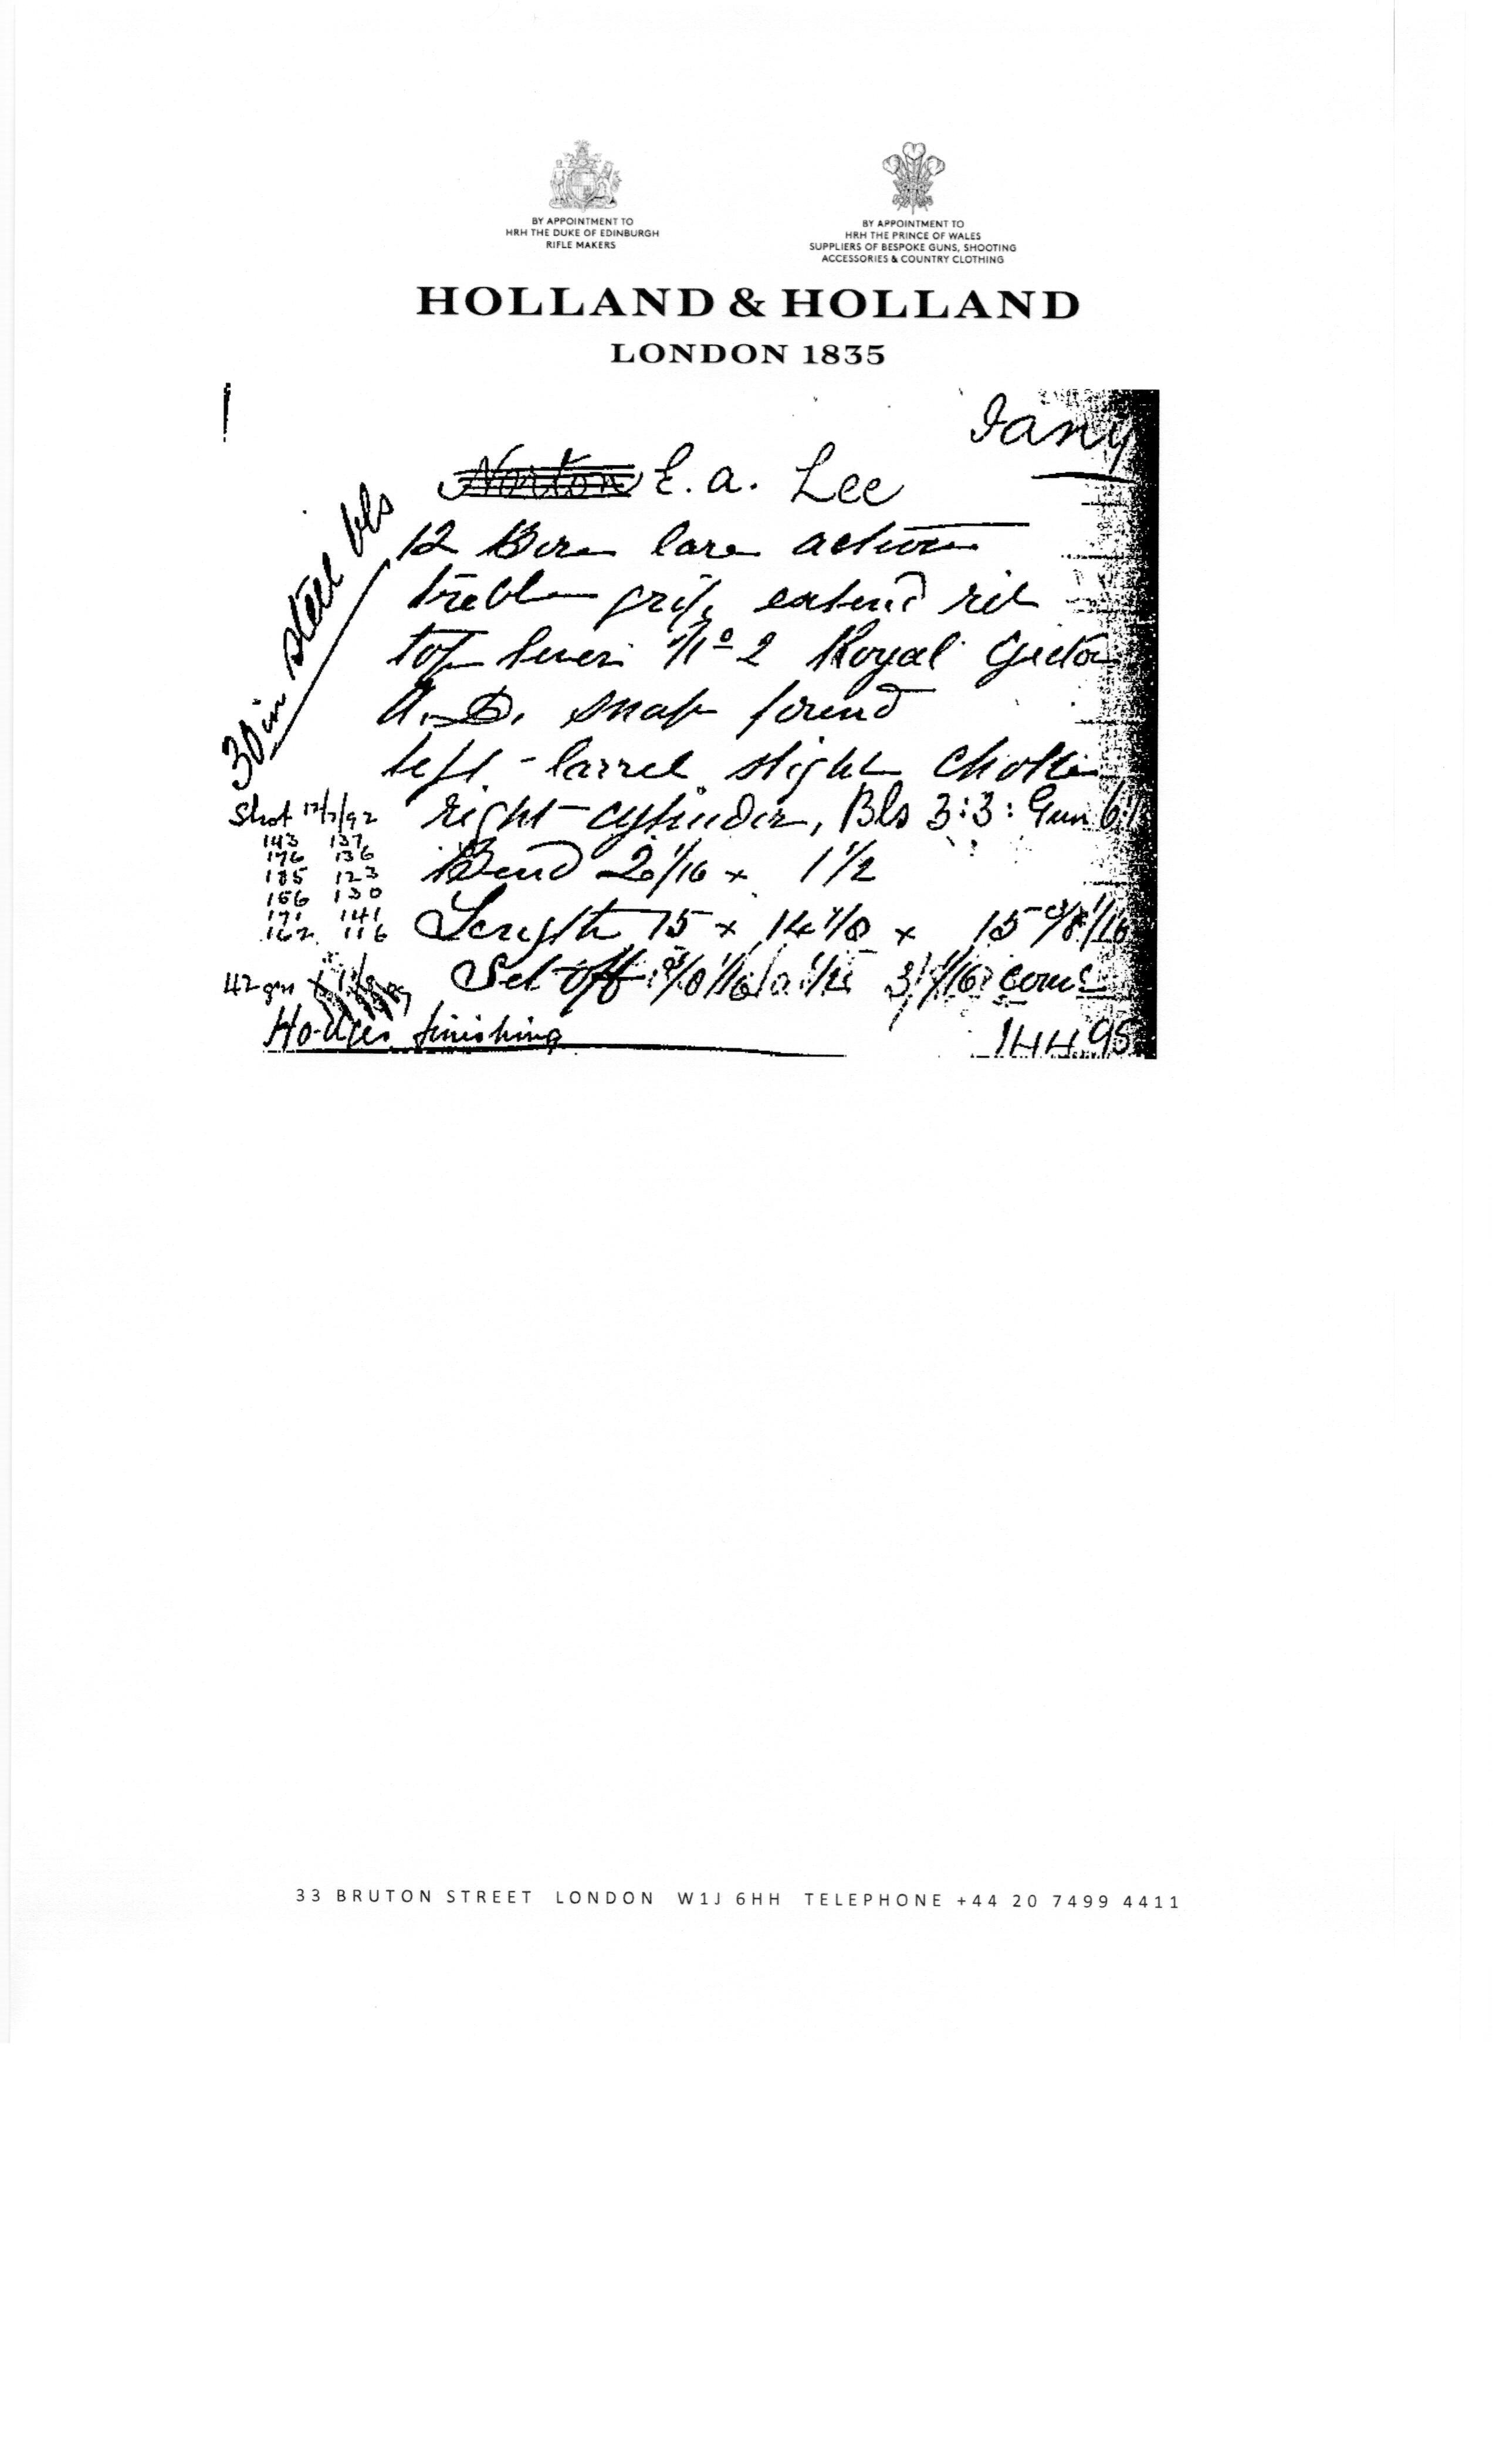 BY APPOINTMENT TO
HRH THE DUKE OF EDINBURGH
RIFLE MAKERS
BY APPOINTMENT TO
HRH THE PRINCE OF WALES
SUPPLIERS OF BESPOKE GUNS, SHOOTING
ACCESSORIES & COUNTRY CLOTHING
HOLLAND & HOLLAND
LONDON 1835
Jany
Norton E. A. Lee
30 in steel bls
12 Bore bar action
treble grip extend rib
top lever No 2 Royal
A. D. snap
left barrel slight choke
right cylinder, Bls 3:3: Gun
Bend 2 1/16 x 1 1/2
Length 15 x 14 7/8 x 15
Set off
Shot 12/7/92
143 137
176 136
185 123
156 130
171 141
162 116
42 grs
Hodges finishing
33 BRUTON STREET LONDON W1J 6HH TELEPHONE +44 20 7499 4411